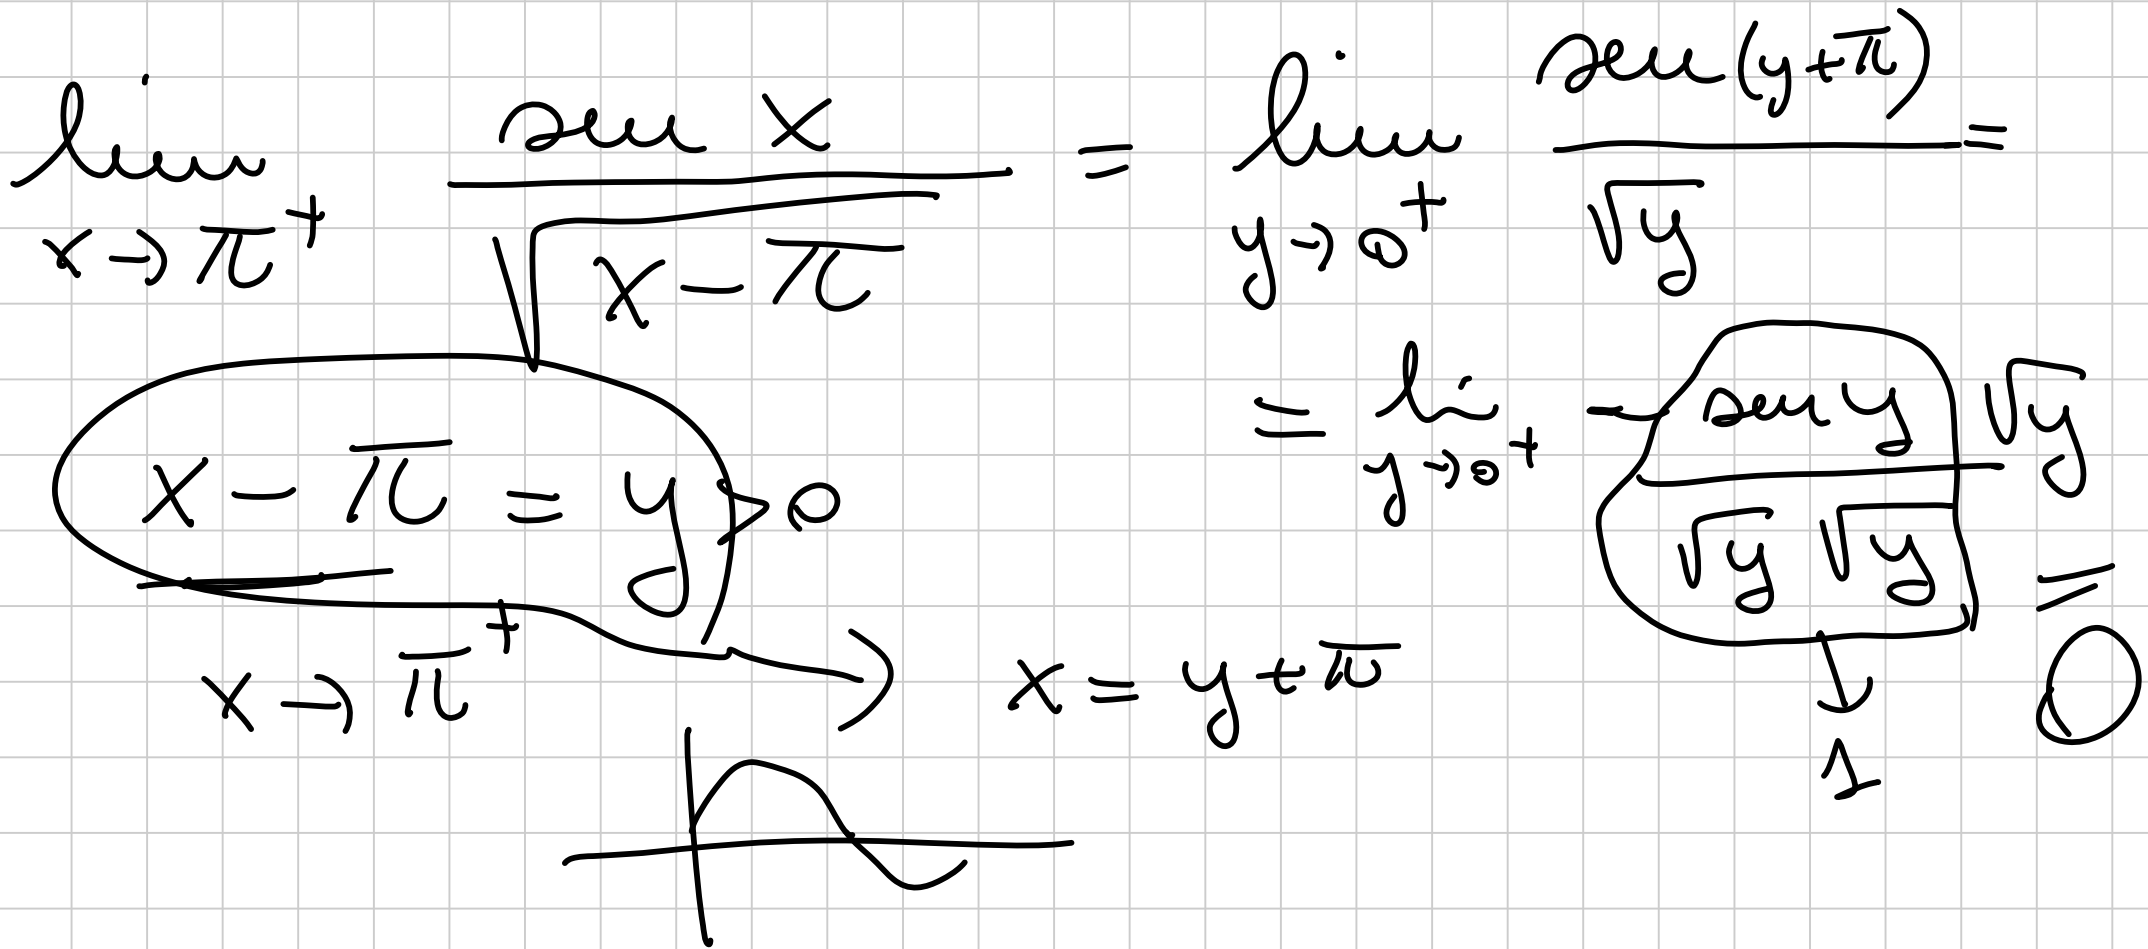 lim x→π⁺ sen x / √(x−π) = lim y→0⁺ sen(y+π) / √y =
= lim y→0⁺ − (sen y / (√y √y)) √y = 0
↓ 1
x − π = y > 0
x→π⁺
→ x = y + π